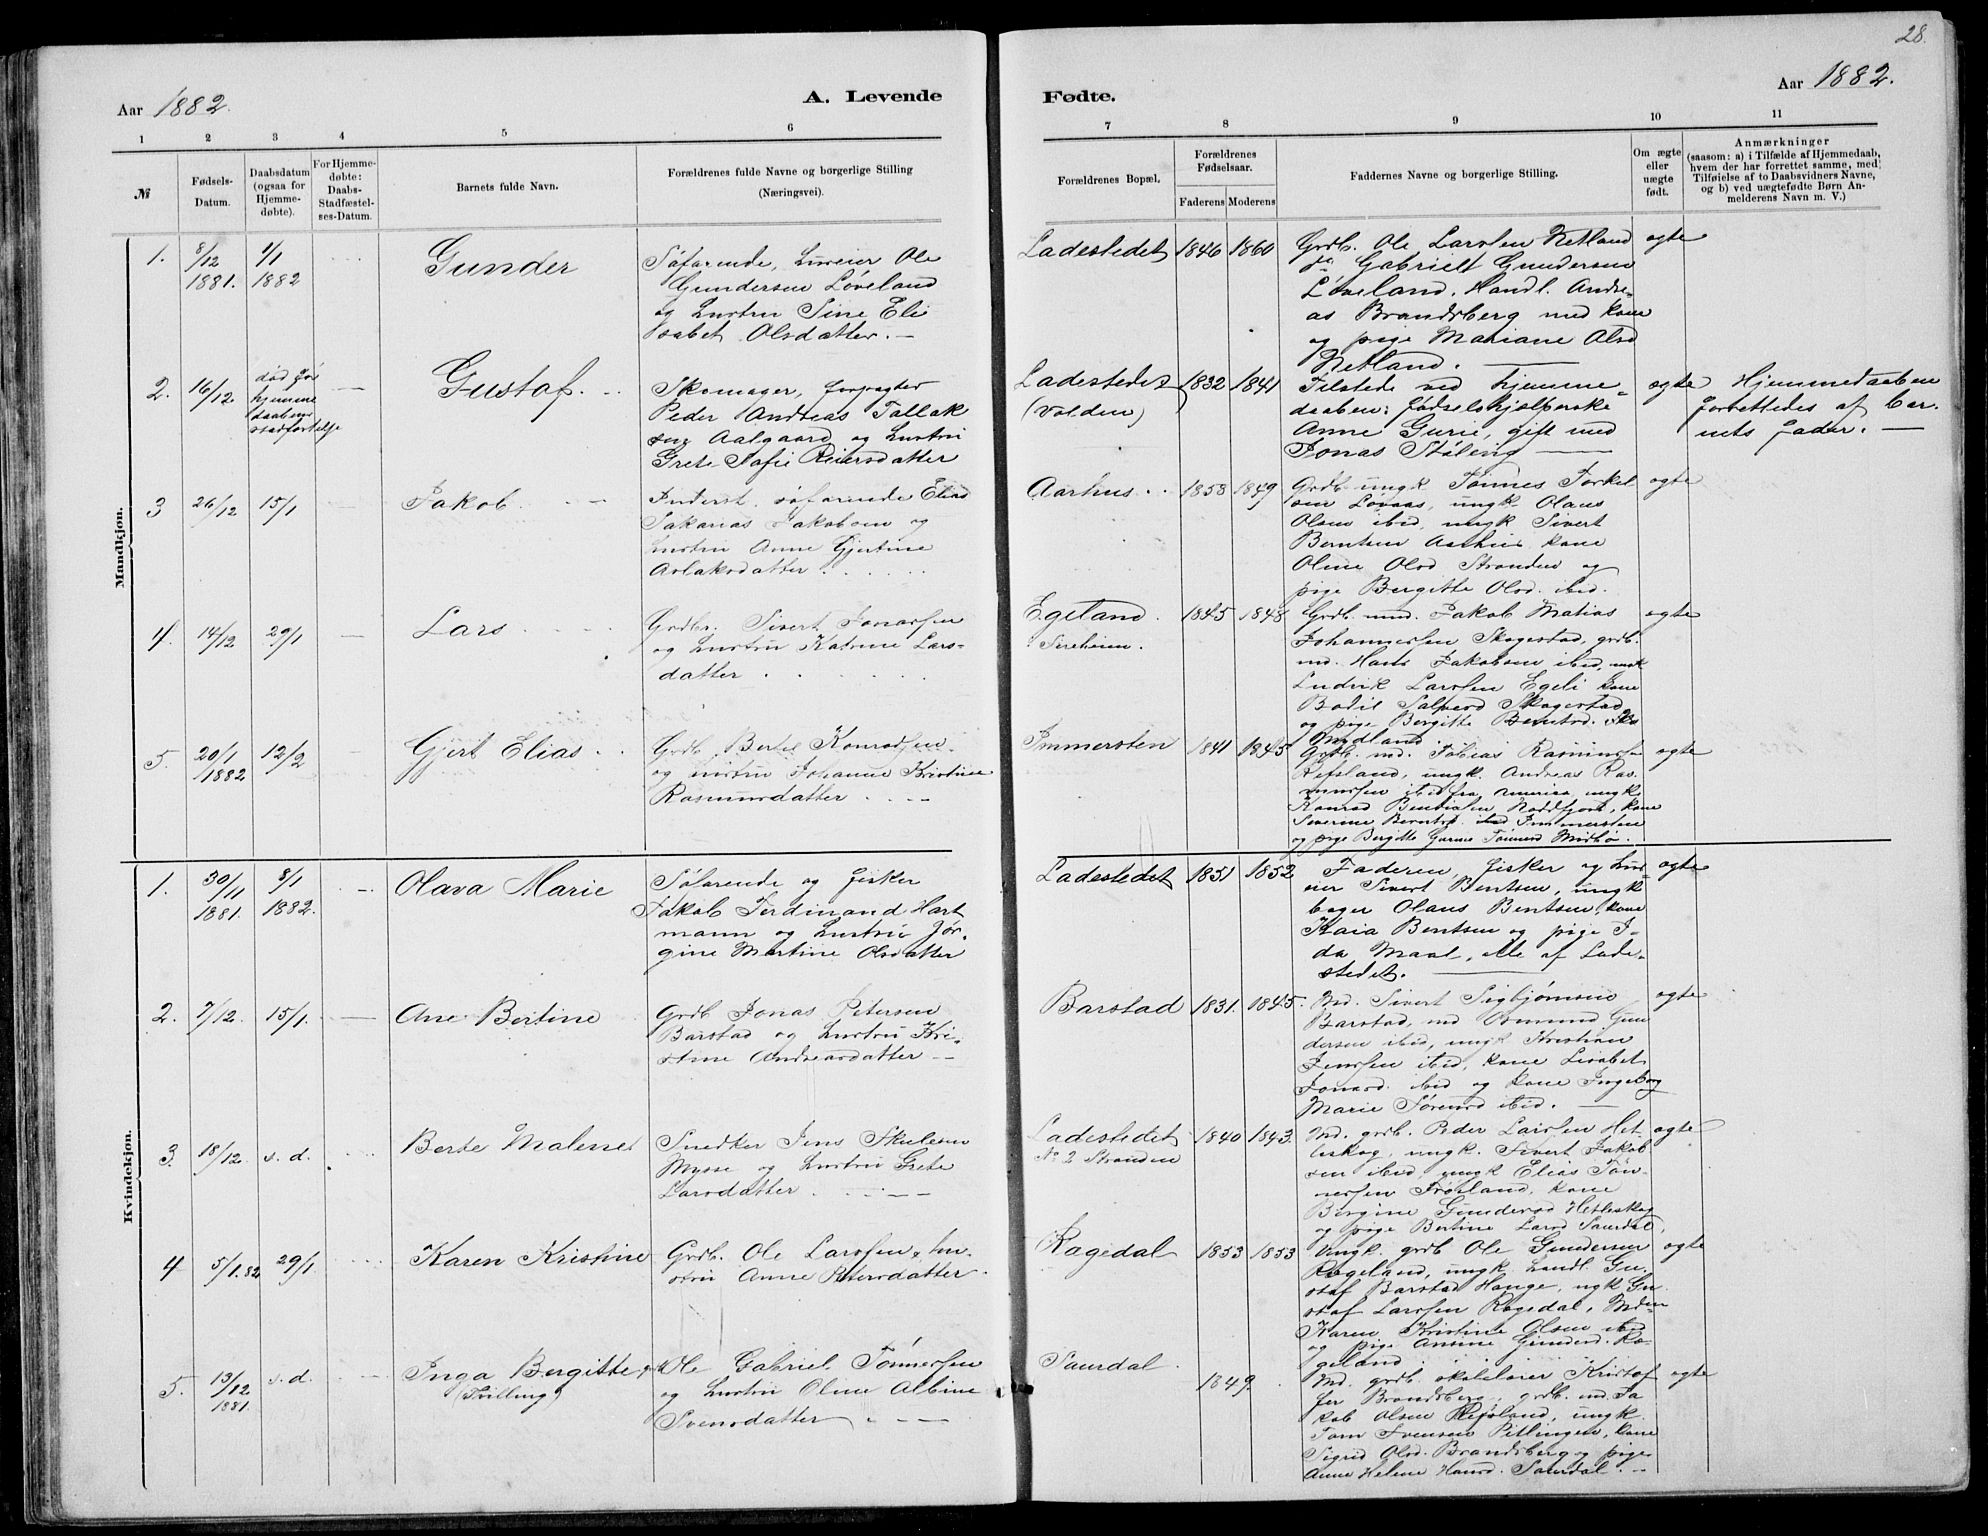 28.
Aar 1882.
A. Levende
Fødte.
Aar 1882.
1 2 3 4 5 6
7 8 9 10 11
№
Fødsels-
Datum.
Daabsdatum
(ogsaa for
Hjemme-
døbte).
For Hjemme-
døbte:
Daabs-
Stadfæstel-
ses-Datum.
Barnets fulde Navn.
Forældrenes fulde Navne og borgerlige Stilling
(Næringsvei).
Forældrenes Bopæl.
Forældrenes
Fødselsaar.
Faderens Moderens
Faddernes Navne og borgerlige Stilling.
Om ægte
eller
uægte
født.
Anmærkninger
(saasom: a) i Tilfælde af Hjemmedaab,
hvem der har forrettet samme, med
Tilføielse af to Daabsvidners Navne,
og b) ved uægtefødte Børn An-
melderens Navn m. V.)
Mandkjøn.
1.
8/12
1881.
1/1
1882
Gunder
Søfarende, Huseier Ole
Gundersen Løveland
og hustru Sine Eli
sabet Olsdatter. —
Ladestedet
1846
1860
Grdb. Ole Larssen Netland
Gabrielt Gundersen
Løveland, Handl. Andre-
as Brandsberg med kone
og pige Mariane Olsd
Netland. —
ægte
2.
16/12
død før
hjemme
daabens
stadfæstelse
Gustaf.
Skomager, forpagter
Peder Andreas Tallak
sen Aalgaard og hustru
Grete Sofie Reiersdatter
Ladestedet
(Volden)
1832
1841
Tilstede ved hjemme-
daaben: fødselshjælperske
Anne Gurie, gift med
Jonas Støleng —
ægte
Hjemmedaaben
forrettedes af bar-
nets fader. —
3
26/12
15/1
Jakob.
Inderst, søfarende Elias
Sakarias Jakobsen og
hustru Anne Gjertine
Aslaksdatter
Aarhus
1858
1849
Grdb. ungk. Tønnes Torkel
sen Løvaas, ungk. Olaus
Olsen ibid, ungk Sivert
Berntsen Aarhus kone
Oline Olsd Stranden og
pige Bergitte Olsd. ibid.
ægte
4.
14/12
29/1
Lars
Grdbr. Sivert Jonassen
og hustru Katrine Lars-
datter
Egeland.
Sireheien.
1845
1848
Grdb. md. Jakob Matias
Johannessen Skogestad, grdb.
md. Hans Jakobsen ibid, ungk
Ludvik Larssen Egeli kone
Bodil Salvesd Skogestad
og pige Bergitte Berntsd.
Midland
ægte
5.
20/1
1882
12/2
Gjert Elias
Grdb. Bertel Konradsen
og hustru Johanne Kristine
Rasmusdatter
Immersten
1841
1845
Grdb. md. Tobias Rasmussen
Refsland, ungk. Andreas Ras-
mussen ibid fra Amerika, ungk.
Konrad Bendiksen Noddfjord, kone
Severine Berntsd. ibid Immersten
og pige Bergitte Gurine Tønnesd Midbø.
ægte
Kvindekjøn.
1.
30/11
1881.
8/1
1882.
Olava Marie
Søfarende og fisker
Jakob Ferdinand Hart
mann og hustru Jør-
gine Martine Olsdatter
Ladestedet
1851
1852
Faderen, fisker og hus
eier Sivert Bentsen, ungk
bager Olaus Bentsen, kone
Kaia Bentsen og pige I-
da Maal, alle af Lade-
stedet. —
ægte
2.
7/12.
15/1.
Ane Bertine
Grdb Jonas Petersen
Barstad og hustru Kri-
stine Andreasdatter
Barstad
1831.
1845.
Md. Sivert Sigbjørnsen
Barstad, md Osmund Gun
dersen ibid, ungk Kristian
Jenssen ibid, kone Lisabet
Jonasd. ibid og kone Ingeborg
Marie Sørensd ibid. —
ægte
3.
18/12
s. d.
Berte Malene
Snedker Jens Skulesen
Mysse og hustru Grete
Larsdatter
Ladestedet
No 2 Stranden
1840
1843.
Md. grdb. Peder Larssen Het
leskog, ungk. Sivert Jakob
sen ibid, ungk Elias Tøn-
nessen Frøiland, kone
Bergine Gundersd Hetleskog
og pige Bertine Larsd Saurdal.
ægte
4
5/1.82
29/1.
Karen Kristine
Grdb. Ole Larssen, hu-
stru Anne Petersdatter.
Ragedal
1853
1853
Ungk. grdb Ole Gundersen
Rogeland, ungk. handl. Gu-
staf Barstad Hauge, ungk Gu
staf Larssen Ragedal, Enken
Karen Kristine Olsen ibid
og pige Ansine Gundersd. Ro-
geland
ægte
5.
13/12
1881.
s. d.
Inga Bergitte,
(Tvilling)
Ole Gabriel Tønnessen
og hustru Oline Albine
Svensdatter
Saurdal.
1849.
Md. grdb. skolelærer Kristof
fer Brandsberg, grdb. md. Ja
kob Olsen Refsland, ungk.
Tom Svensen Petlingen, kone
Sigrid Olsd. Brandsberg og pige
Anne Helene Hansd. Saurdal.
ægte